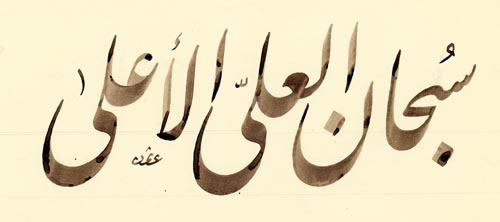 سُبحان العليّ الأعلى